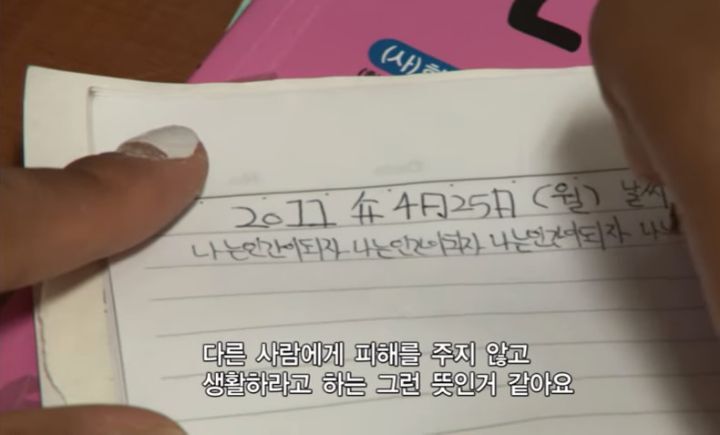 (사)
2011 年 4月25日 (월) 날씨
나는인간이되자 나는인간이되자 나는인간이되자 나는
다른 사람에게 피해를 주지 않고
생활하라고 하는 그런 뜻인거 같아요